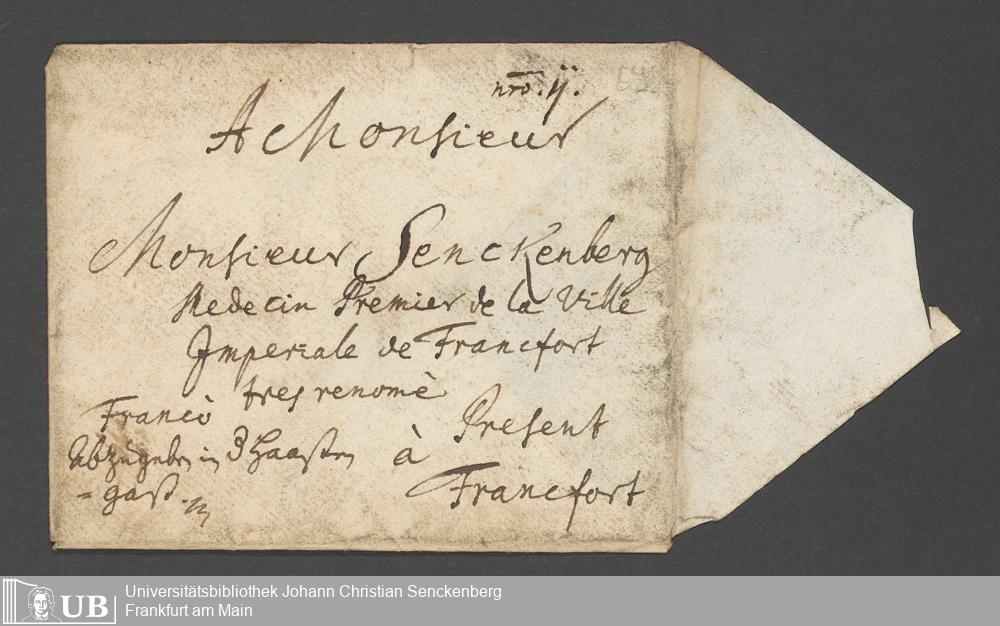 nro. ij.
A Monsieur
Monsieur Senckenberg
Medecin Premier de la Ville
Imperiale de Francfort
tres renomè
Francò
Present
Abzugeben in d Haasen
à
- gass.
Francfort
64
Universitätsbibliothek Johann Christian Senckenberg
Frankfurt am Main
UB